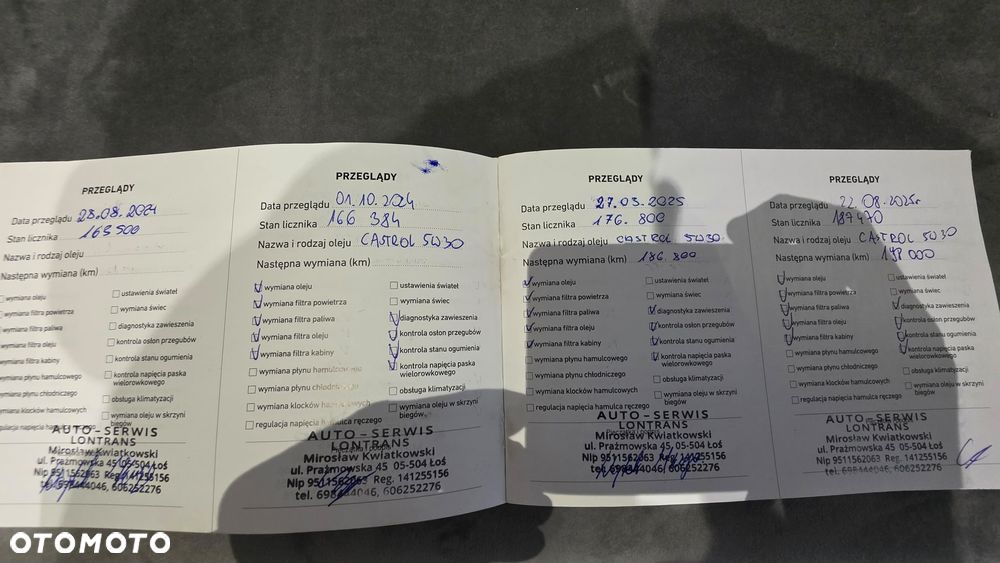 PRZEGLĄDY
Data przeglądu 28.08.2024
Stan licznika 163500
Nazwa i rodzaj oleju
Następna wymiana (km)
wymiana oleju
wymiana filtra powietrza
wymiana filtra paliwa
wymiana filtra oleju
wymiana filtra kabiny
wymiana płynu hamulcowego
wymiana płynu chłodniczego
wymiana klocków hamulcowych
regulacja napięcia hamulca ręcznego
ustawienia świateł
wymiana świec
diagnostyka zawieszenia
kontrola osłon przegubów
kontrola stanu ogumienia
kontrola napięcia paska
wielorowkowego
obsługa klimatyzacji
wymiana oleju w skrzyni
biegów
AUTO-SERWIS
LONTRANS
Mirosław Kwiatkowski
ul. Prażmowska 45 05-504 Łoś
Nip 9511562063 Reg. 141255156
tel. 698444046, 606252276
PRZEGLĄDY
Data przeglądu 01.10.2024
Stan licznika 166 384
Nazwa i rodzaj oleju CASTROL 5W30
Następna wymiana (km)
wymiana oleju
wymiana filtra powietrza
wymiana filtra paliwa
wymiana filtra oleju
wymiana filtra kabiny
wymiana płynu hamulcowego
wymiana płynu chłodniczego
wymiana klocków hamulcowych
regulacja napięcia hamulca ręczego
ustawienia świateł
wymiana świec
diagnostyka zawieszenia
kontrola osłon przegubów
kontrola stanu ogumienia
kontrola napięcia paska
wielorowkowego
obsługa klimatyzacji
wymiana oleju w skrzyni
biegów
AUTO-SERWIS
LONTRANS
Mirosław Kwiatkowski
ul. Prażmowska 45 05-504 Łoś
Nip 9511562063 Reg. 141255156
tel. 698444046, 606252276
PRZEGLĄDY
Data przeglądu 27.03.2025
Stan licznika 176.800
Nazwa i rodzaj oleju CASTROL 5W30
Następna wymiana (km) 186.800
wymiana oleju
wymiana filtra powietrza
wymiana filtra paliwa
wymiana filtra oleju
wymiana filtra kabiny
wymiana płynu hamulcowego
wymiana płynu chłodniczego
wymiana klocków hamulcowych
regulacja napięcia hamulca ręczego
ustawienia świateł
wymiana świec
diagnostyka zawieszenia
kontrola osłon przegubów
kontrola stanu ogumienia
kontrola napięcia paska
wielorowkowego
obsługa klimatyzacji
wymiana oleju w skrzyni
biegów
AUTO-SERWIS
LONTRANS
Mirosław Kwiatkowski
ul. Prażmowska 45 05-504 Łoś
Nip 9511562063 Reg. 141255156
tel. 698444046, 606252276
PRZEGLĄDY
Data przeglądu 22.08.2025r
Stan licznika 187470
Nazwa i rodzaj oleju CASTROL 5W30
Następna wymiana (km) 198 000
wymiana oleju
wymiana filtra powietrza
wymiana filtra paliwa
wymiana filtra oleju
wymiana filtra kabiny
wymiana płynu hamulcowego
wymiana płynu chłodniczego
wymiana klocków hamulcowych
regulacja napięcia hamulca ręczego
ustawienia świateł
wymiana świec
diagnostyka zawieszenia
kontrola osłon przegubów
kontrola stanu ogumienia
kontrola napięcia paska
wielorowkowego
obsługa klimatyzacji
wymiana oleju w skrzyni
biegów
AUTO-SERWIS
LONTRANS
Mirosław Kwiatkowski
ul. Prażmowska 45 05-504 Łoś
Nip 9511562063 Reg. 141255156
tel. 698444046, 606252276
OTOMOTO